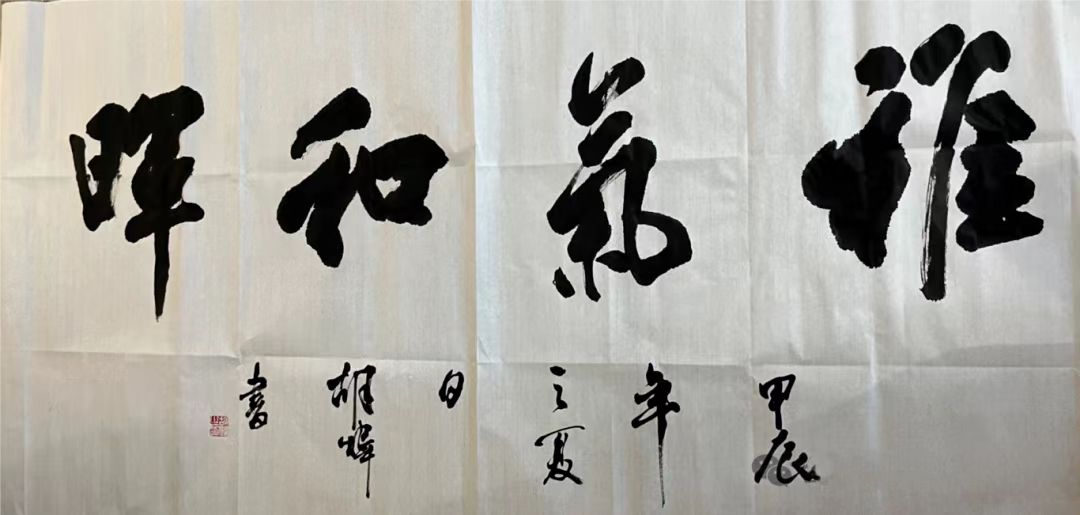 雅氣和暉
甲辰
年
之夏
日
胡
書